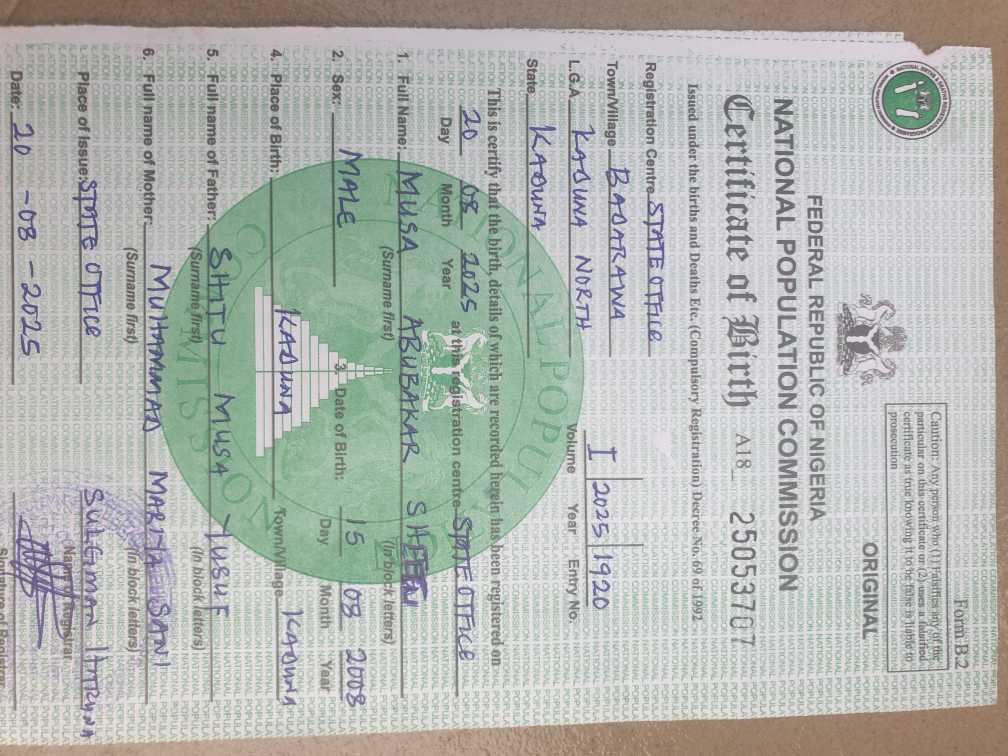 Form B.2
Caution: Any person who (1) Falsifies any of the
particular on this certificate or (2) uses a falsified
certificate as true knowing it to be false is liable to
prosecution
ORIGINAL
FEDERAL REPUBLIC OF NIGERIA
NATIONAL POPULATION COMMISSION
Certificate of Birth A18 25053707
Issued under the births and Deaths Etc. (Compulsory Registration) Decree No. 69 of 1992
Registration Centre STATE OFFICE
Town/Village BADARAWA
L.G.A KADUNA NORTH
State KADUNA
I 2025 1920
Volume Year Entry No.
This is certify that the birth, details of which are recorded herein has been registered on
20 08 2025 at this registration centre STATE OFFICE
Day Month Year
1. Full Name: MUSA ABUBAKAR
(Surname first) (In block letters)
2. Sex: MALE 3. Date of Birth: 15 08 2008
Day Month Year
4. Place of Birth: KADUNA Town/Village KADUNA
5. Full name of Father: SHITU MUSA YUSUF
(Surname first) (In block letters)
6. Full name of Mother: MUHAMMAD MARIYA SANI
(Surname first) (In block letters)
Place of Issue: STATE OFFICE SULEIMAN HARUNA
Name of Registrar
Date: 20-08-2025
Signature of Registrar